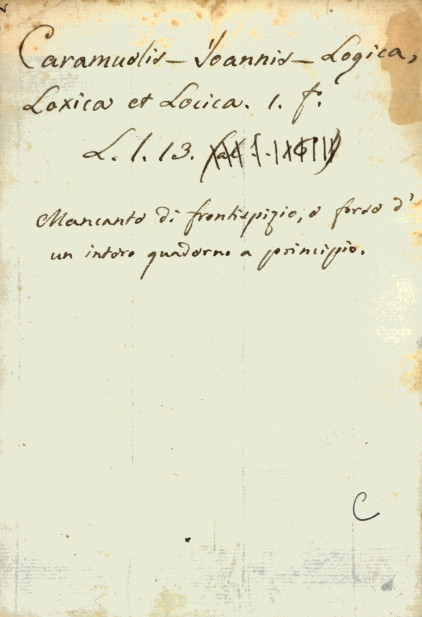 Caramuelis - Joannis - Logica,
Loxica et Locica. 1. f.
L. 1. 13.
Mancante di frontispizio, o forse d'
un intero quaderno a principio.
C